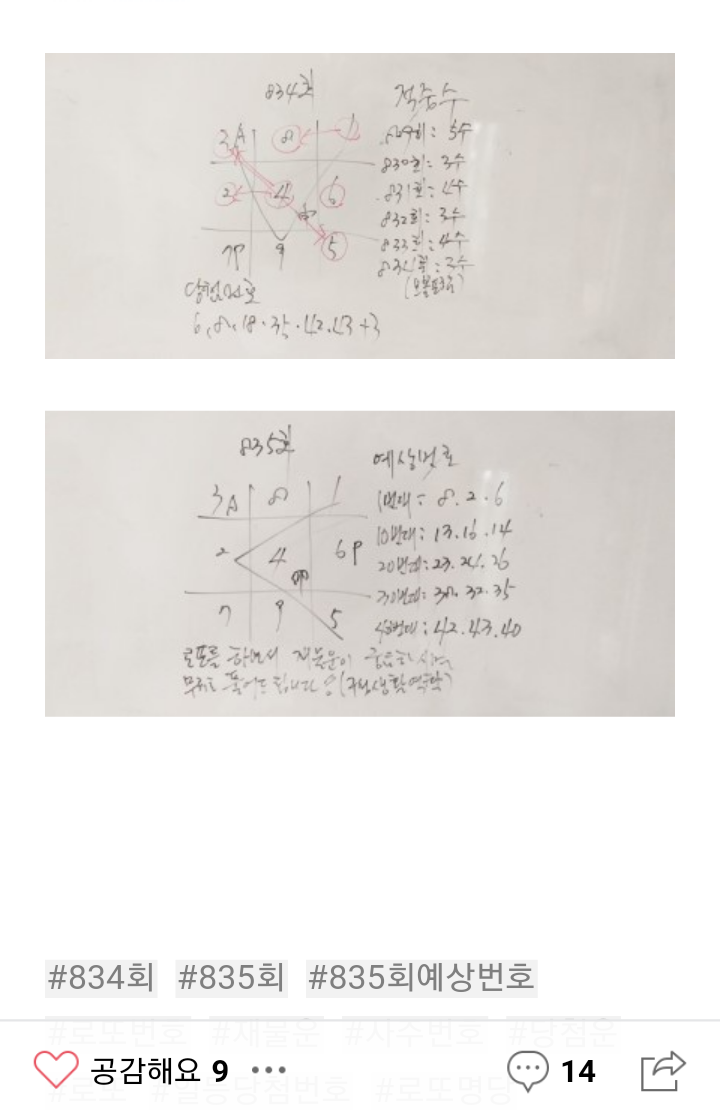 834회
적중수
3 A 8 1
829회: 5수
830회: 3수
2 4 6
831회: 4수
832회: 3수
833회: 4수
9 5
834회: 3수
당첨번호
6, 8, 18 · 35 · 42, 43 + 3
835회
예상번호
3 A 8 1
1번대: 8. 2. 6
10번대: 13. 16. 14
2 4 6 P
20번대: 23. 24. 26
30번대: 32. 35
7 9 5
40번대: 42. 43. 40
로또를 하면서 재물운이 궁금하시면
무료로 풀어드립니다
#834회 #835회 #835회예상번호
#로또번호 #재물운 #사주번호 #당첨운
#로또 #로또명당
공감해요 9 ··· 14